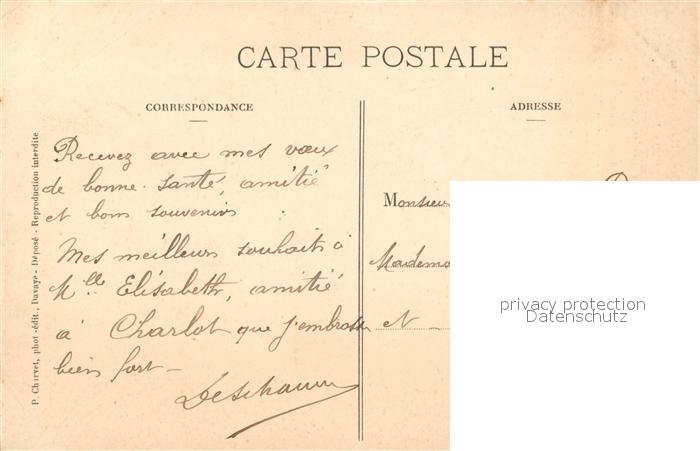 CARTE POSTALE
CORRESPONDANCE
Recevez avec mes vœux
de bonne santé, amitié
et bons souvenirs
Mes meilleurs souhaits à
Mlle Elisabeth, amitié
à Charlot que j'embrasse
bien fort —
ADRESSE
Monsieur
Madem
et
P. Charvet, phot.-édit., Davayé - Déposé - Reproduction interdite
privacy protection
Datenschutz